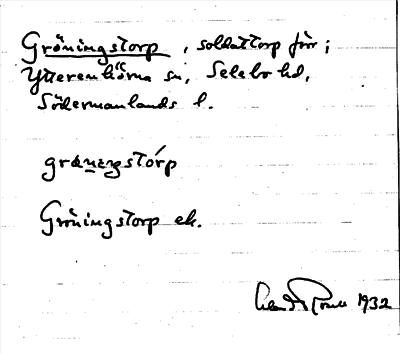 Gröningstorp, soldattorp förr i
Ytterenhörna sn, Selebo hd,
Södermanlands l.
grǿnıŋstórp
Gröningstorp ek.
1932